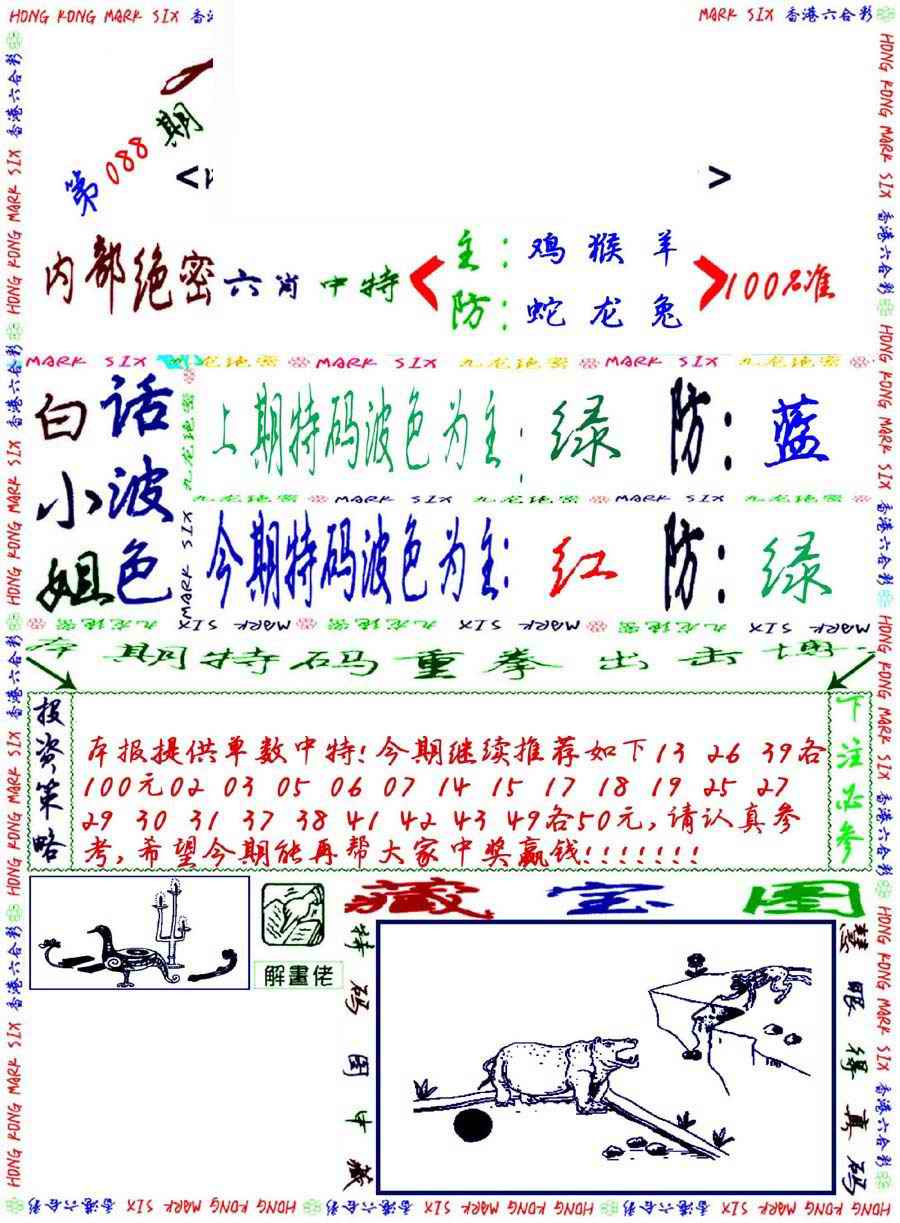 HONG KONG MARK SIX 香港
MARK SIX 香港六合彩
第088期
<
>
内部绝密六肖中特
主：鸡猴羊
防：蛇龙兔
100%准
MARK SIX 九龙绝密 MARK SIX 九龙绝密 MARK SIX 九龙绝密
白话
小波
姐色
上期特码波色为主：绿 防：蓝
九龙绝密 MARK SIX 九龙绝密 MARK SIX 九龙绝密
今期特码波色为主：红 防：绿
九龙绝密 MARK SIX 九龙绝密 MARK SIX 九龙绝密 MARK SIX
本期特码重拳出击
投资策略
本报提供单数中特!今期继续推荐如下13 26 39各
100元02 03 05 06 07 14 15 17 18 19 25 27
29 30 31 37 38 41 42 43 49各50元,请认真参
考,希望今期能再帮大家中奖赢钱!!!!!!!
下注必参
解畫佬
藏宝图
特码图中藏
慧眼得真码
HONG KONG MARK SIX 香港六合彩